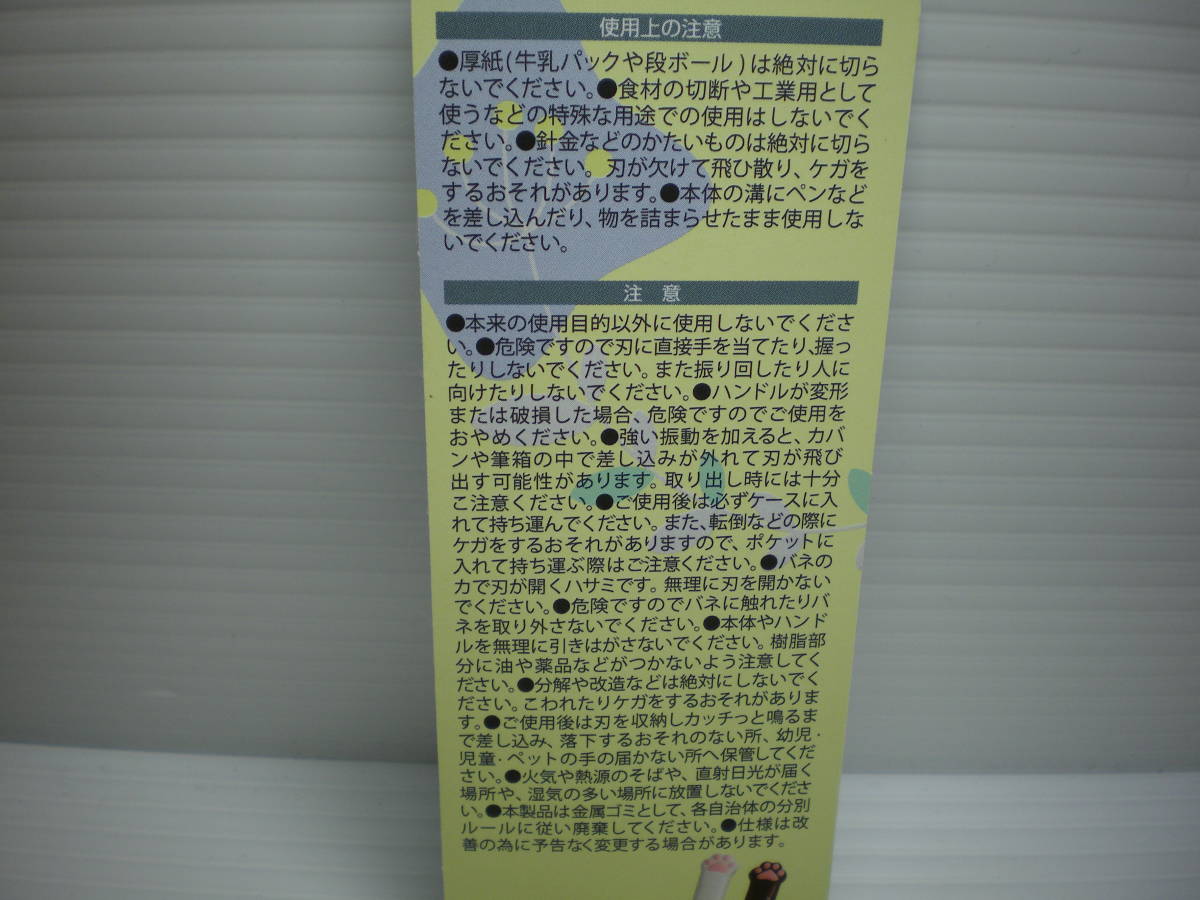 使用上の注意
●厚紙(牛乳パックや段ボール)は絶対に切ら
ないでください。●食材の切断や工業用として
使うなどの特殊な用途での使用はしないでく
ださい。●針金などのかたいものは絶対に切ら
ないでください。刃が欠けて飛ひ散り、ケガを
するおそれがあります。●本体の溝にペンなど
を差し込んだり、物を詰まらせたまま使用しな
いでください。
注 意
●本来の使用目的以外に使用しないでくださ
い。●危険ですので刃に直接手を当てたり、握っ
たりしないでください。また振り回したり人に
向けたりしないでください。●ハンドルが変形
または破損した場合、危険ですのでご使用を
おやめください。●強い振動を加えると、カバ
ンや筆箱の中で差し込みが外れて刃が飛び
出す可能性があります。取り出し時には十分
こ注意ください。●ご使用後は必ずケースに入
れて持ち運んでください。また、転倒などの際に
ケガをするおそれがありますので、ポケットに
入れて持ち運ぶ際はご注意ください。●バネの
力で刃が開くハサミです。無理に刃を開かない
でください。●危険ですのでバネに触れたりバ
ネを取り外さないでください。●本体やハンド
ルを無理に引きはがさないでください。樹脂部
分に油や薬品などがつかないよう注意してく
ださい。●分解や改造などは絶対にしないでく
ださい。こわれたりケガをするおそれがありま
す。●ご使用後は刃を収納しカッチっと鳴るま
で差し込み、落下するおそれのない所、幼児・
児童・ペットの手の届かない所へ保管してくだ
さい。●火気や熱源のそばや、直射日光が届く
場所や、湿気の多い場所に放置しないでくださ
い。●本製品は金属ゴミとして、各自治体の分別
ルールに従い廃棄してください。●仕様は改
善の為に予告なく変更する場合があります。